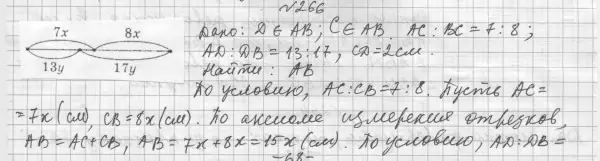 №266
7x 8x
13y 17y
Дано: D ∈ AB; C ∈ AB. AC : BC = 7 : 8;
AD : DB = 13 : 17, CD = 2см.
Найти: AB
По условию, AC : CB = 7 : 8. Пусть AC =
= 7x (см), CB = 8x (см). По аксиоме измерения отрезков,
AB = AC + CB, AB = 7x + 8x = 15x (см). По условию, AD : DB =
-68-